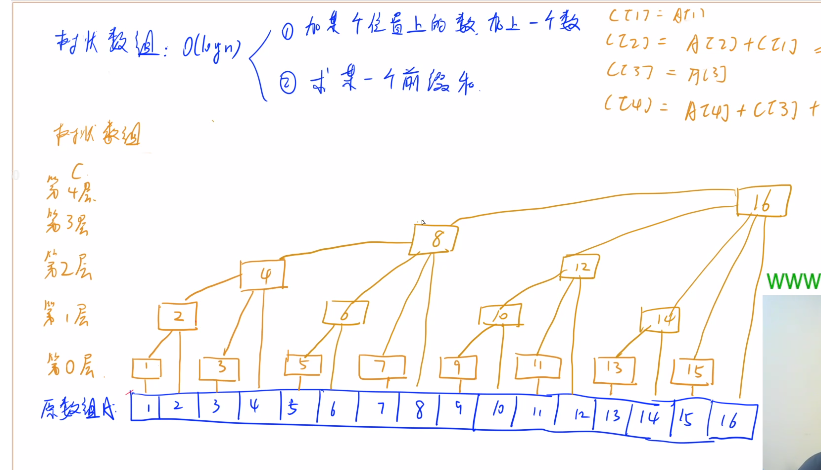 树状数组: O(logn)
① 加某个位置上的数,加上一个数
② 求某一个前缀和.
C[1] = A[1]
C[2] = A[2] + C[1] =
C[3] = A[3]
C[4] = A[4] + C[3] +
树状数组
C
第4层
第3层
第2层
第1层
第0层
16
8
4
12
2
6
10
14
1 3 5 7 9 11 13 15
原数组A:
1 2 3 4 5 6 7 8 9 10 11 12 13 14 15 16
WWW